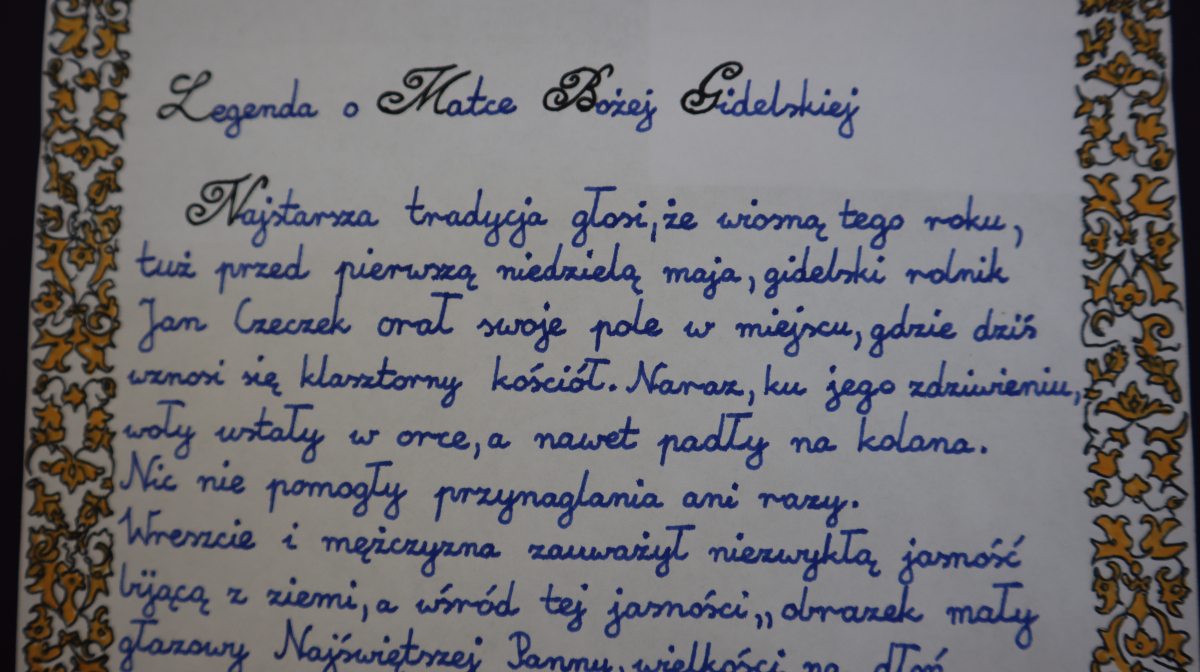 Legenda o Matce Bożej Gidelskiej
Najstarsza tradycja głosi, że wiosną tego roku,
tuż przed pierwszą niedzielą maja, gidelski rolnik
Jan Czeczek orał swoje pole w miejscu, gdzie dziś
wznosi się klasztorny kościół. Naraz, ku jego zdziwieniu,
woły ustały w orce, a nawet padły na kolana.
Nic nie pomogły przynaglania ani razy.
Wreszcie i mężczyzna zauważył niezwykłą jasność
bijącą z ziemi, a wśród tej jasności „ obrazek mały
głazowy Najświętszej Panny, wielkości na dłoń